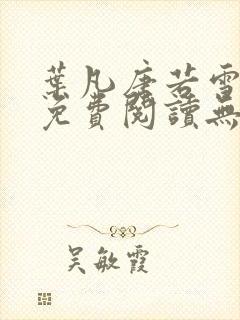 葉凡唐若雪
免費閱讀無
吴敏霞